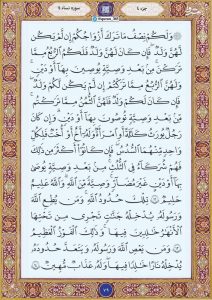 جزء ٤
سوره نساء ٤
وَلَكُمْ نِصْفُ مَا تَرَكَ أَزْوَاجُكُمْ إِن لَّمْ يَكُن
لَّهُنَّ وَلَدٌ فَإِن كَانَ لَهُنَّ وَلَدٌ فَلَكُمُ الرُّبُعُ مِمَّا
تَرَكْنَ مِن بَعْدِ وَصِيَّةٍ يُوصِينَ بِهَا أَوْ دَيْنٍ
وَلَهُنَّ الرُّبُعُ مِمَّا تَرَكْتُمْ إِن لَّمْ يَكُن لَّكُمْ وَلَدٌ
فَإِن كَانَ لَكُمْ وَلَدٌ فَلَهُنَّ الثُّمُنُ مِمَّا تَرَكْتُم
مِّن بَعْدِ وَصِيَّةٍ تُوصُونَ بِهَا أَوْ دَيْنٍ وَإِن كَانَ
رَجُلٌ يُورَثُ كَلَالَةً أَوِ امْرَأَةٌ وَلَهُ أَخٌ أَوْ أُخْتٌ فَلِكُلِّ
وَاحِدٍ مِّنْهُمَا السُّدُسُ فَإِن كَانُوا أَكْثَرَ مِن ذَٰلِكَ
فَهُمْ شُرَكَاءُ فِي الثُّلُثِ مِن بَعْدِ وَصِيَّةٍ يُوصَىٰ
بِهَا أَوْ دَيْنٍ غَيْرَ مُضَارٍّ وَصِيَّةً مِّنَ اللَّهِ وَاللَّهُ عَلِيمٌ
حَلِيمٌ ١٢ تِلْكَ حُدُودُ اللَّهِ وَمَن يُطِعِ اللَّهَ
وَرَسُولَهُ يُدْخِلْهُ جَنَّاتٍ تَجْرِي مِن تَحْتِهَا
الْأَنْهَارُ خَالِدِينَ فِيهَا وَذَٰلِكَ الْفَوْزُ الْعَظِيمُ
١٣ وَمَن يَعْصِ اللَّهَ وَرَسُولَهُ وَيَتَعَدَّ حُدُودَهُ
يُدْخِلْهُ نَارًا خَالِدًا فِيهَا وَلَهُ عَذَابٌ مُّهِينٌ ١٤
٧٩